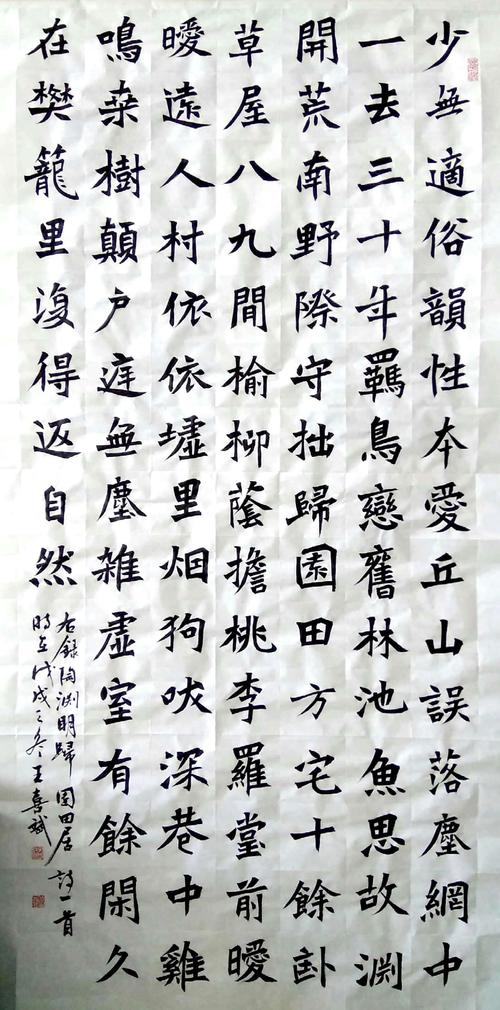 少無適俗韻性本愛丘山誤落塵網中
一去三十年羈鳥戀舊林池魚思故渊
開荒南野際守拙歸園田方宅十餘卦
草屋八九間榆柳蔭擔桃李羅堂前曖
曖遠人村依依墟里烟狗吠深巷中雞
鳴桒樹顛户庭無塵雜虛室有餘閑久
在樊籠里復得返自然
右錄陶渊明歸園田居詩一首
時在戊戌之冬王喜斌